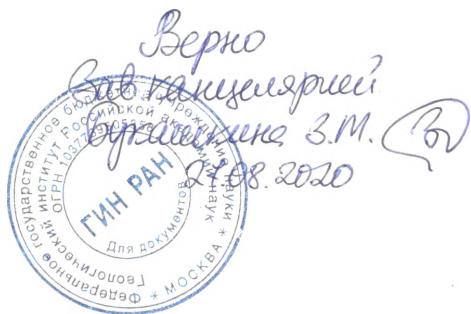 Верно
Зав канцелярией
Букашкина З.М.
27.08.2020
Федеральное государственное бюджетное учреждение науки
Геологический институт Российской академии наук
ОГРН
ГИН РАН
Для документов
* МОСКВА *